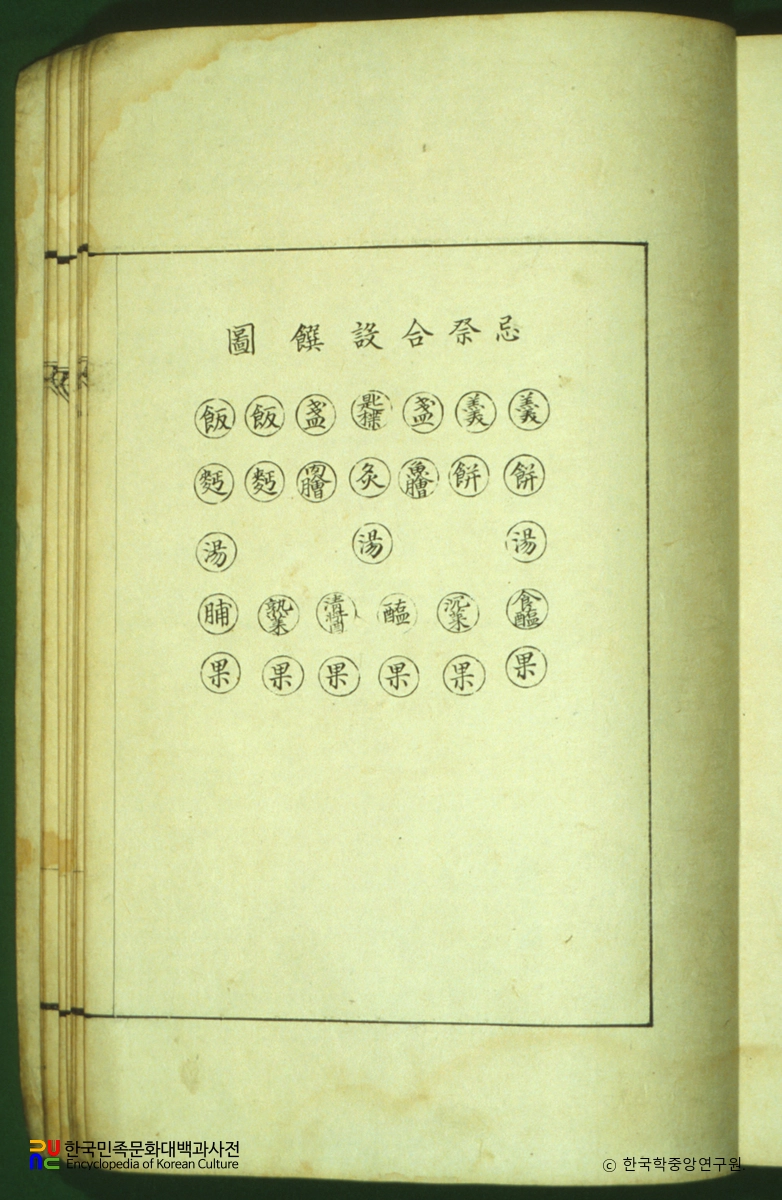 忌祭合設饌圖
羹 羹 盞 匙楪 盞 飯 飯
餠 餠 魚膾 炙 肉膾 麫 麫
湯 湯 湯
食醢 沉菜 醢 清醬 熟菜 脯
果 果 果 果 果 果
한국민족문화대백과사전
Encyclopedia of Korean Culture
© 한국학중앙연구원.